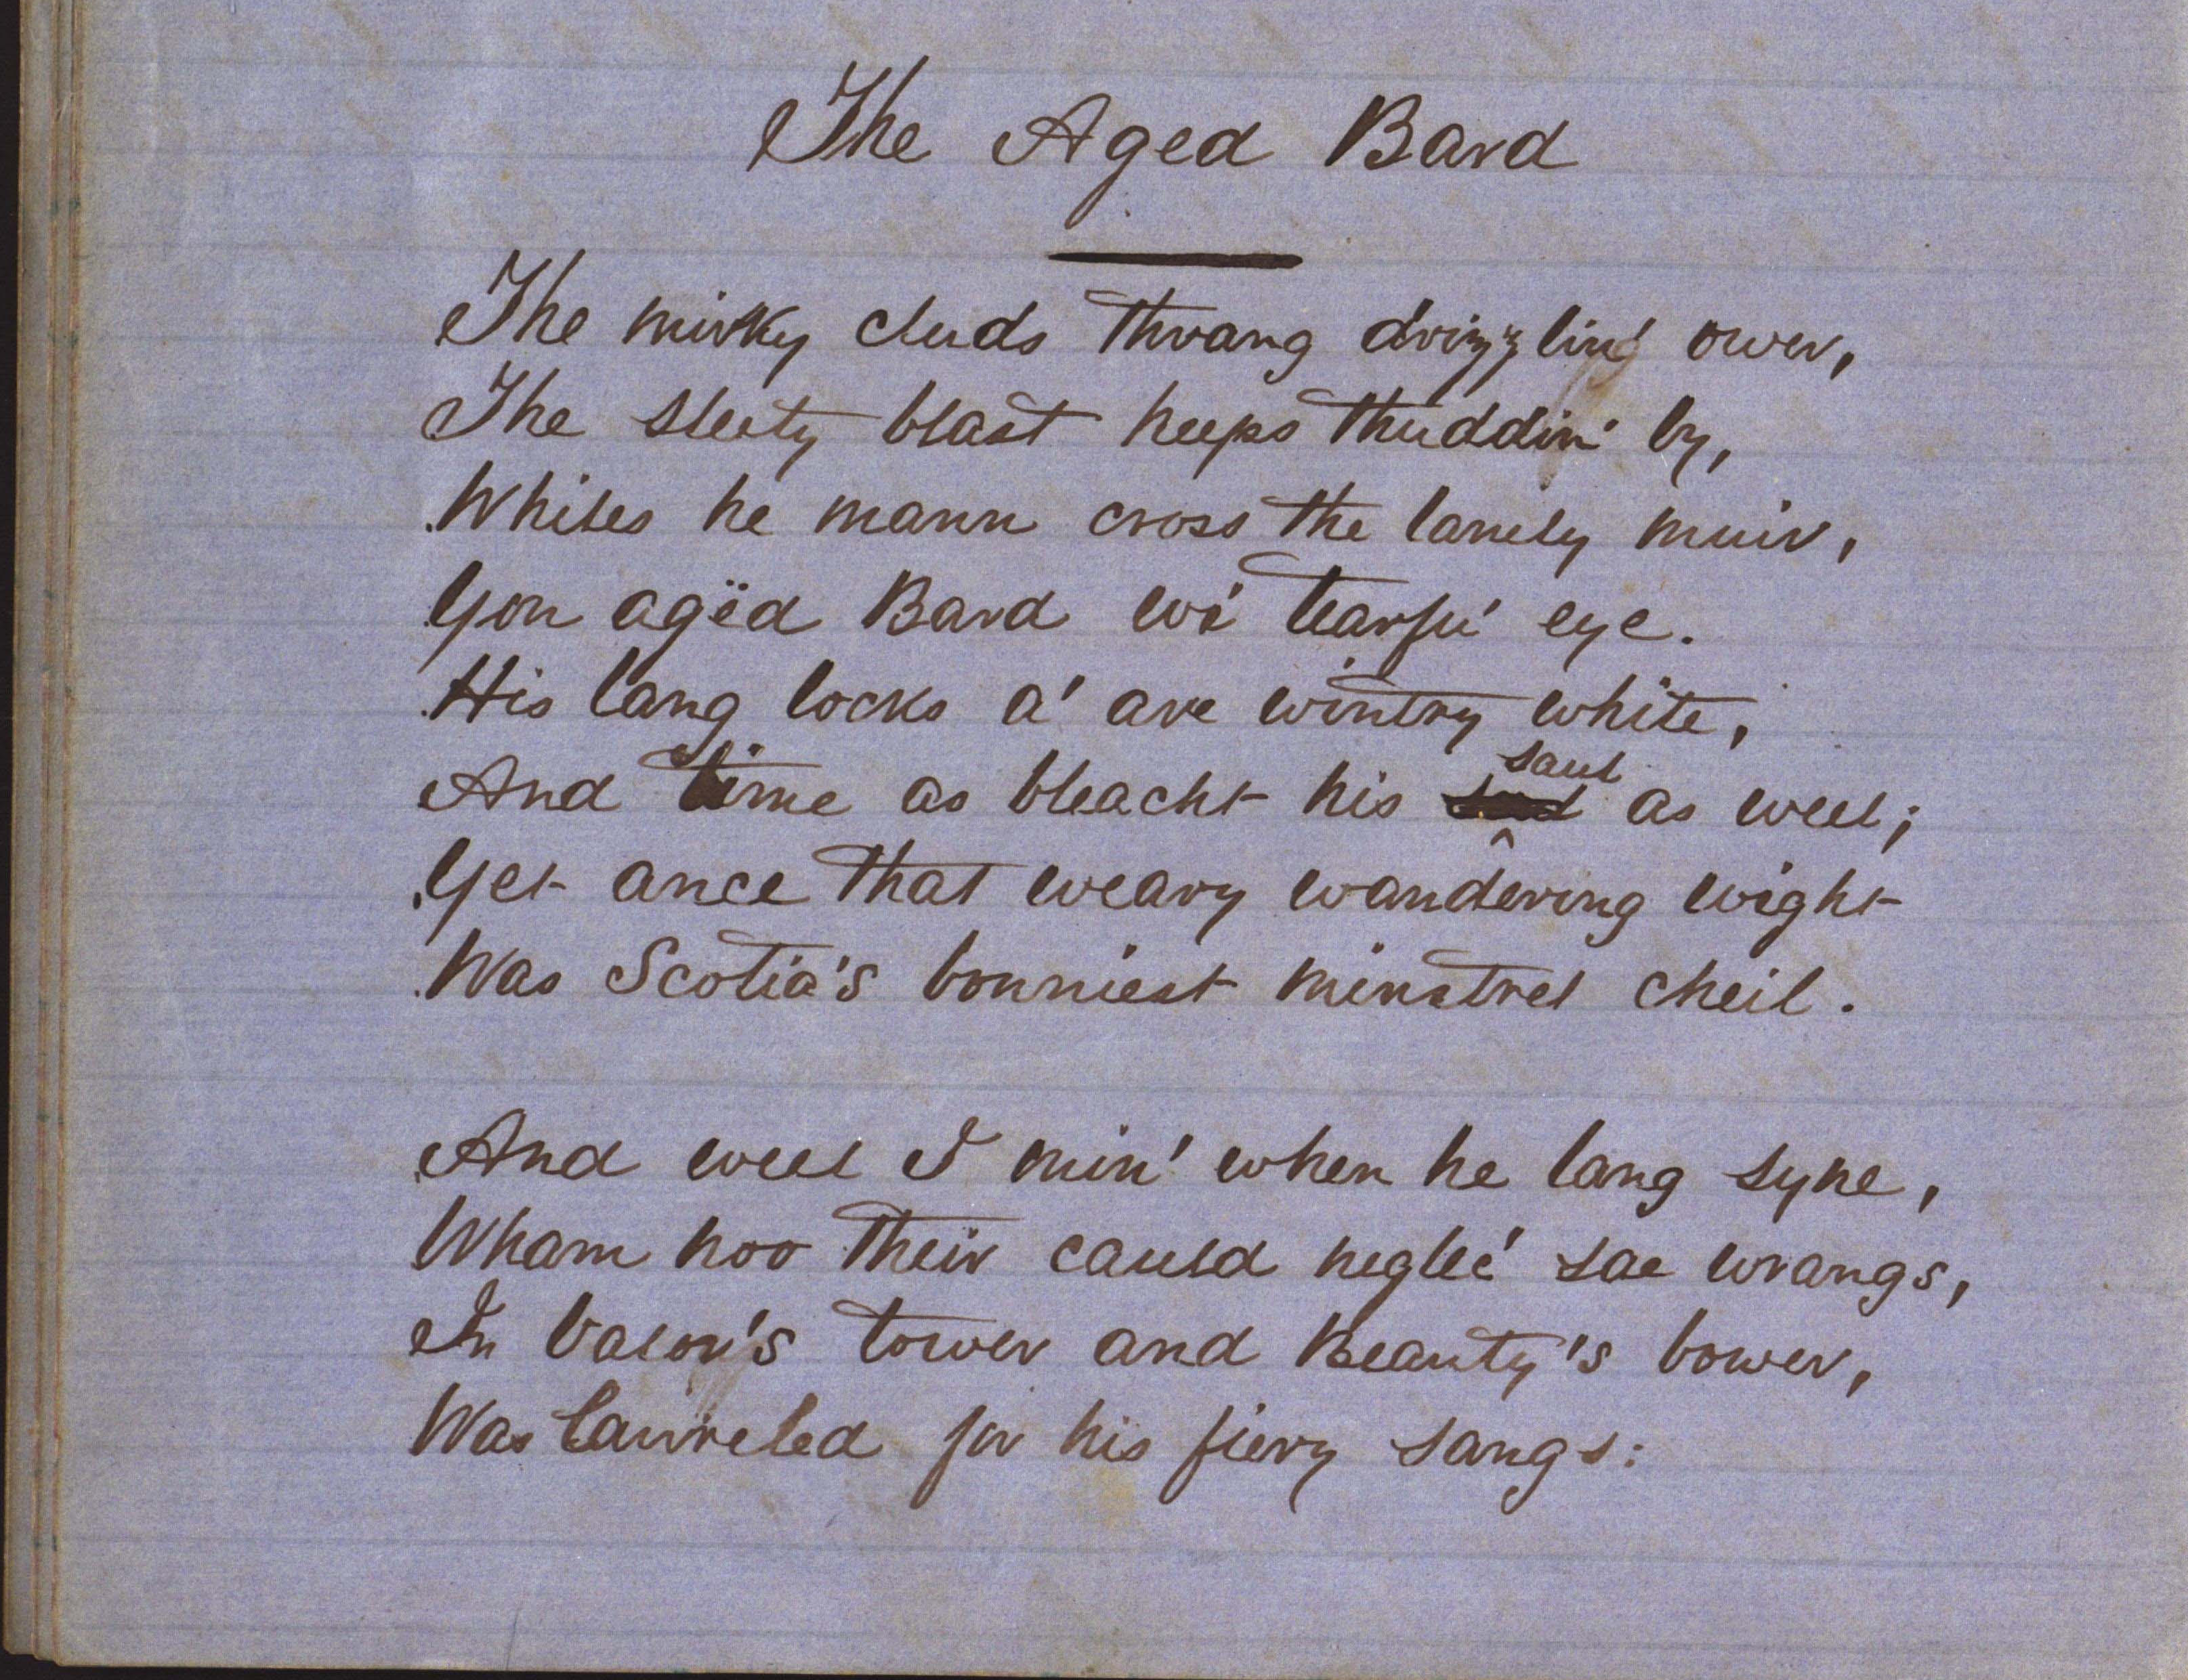 The Aged Bard
The mirky cluds thrang drizzlin' ower,
The sleety blast keeps thuddin' by,
Whiles he maun cross the lanely muir,
Yon agëd Bard wi' tearfu' eye.
His lang locks a' are wintry white,
And time as bleacht his saul as weel;
Yet ance that weary wandering wight
Was Scotia's bonniest minstrel cheil.
And weel I min' when he lang syne,
Wham noo their cauld neglec' sae wrangs,
In Valor's tower and Beauty's bower,
Was laureled for his fiery sangs: